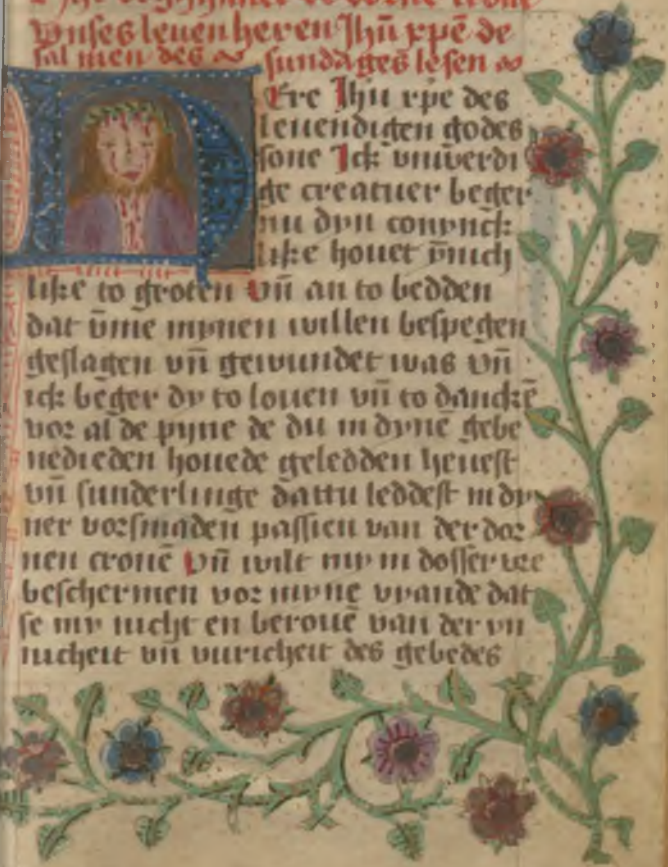 vnses leuen heren Jhū xp̄e de
sal men des sundages lesen
Ere Jhū xpe des
leuendigen godes
sone Ick vnwerdi
ge creatuer beger
nu dyn conynck
like houet ynich
like to groten vn̄ an to bedden
dat v̄me mynen willen bespegen
geslagen vn̄ gewundet was vn̄
ick beger dy to louen vn̄ to dancke
vor al de pyne de du in dynē gebe
nedieden houede geledden heuest
vn̄ sunderlinge dattu leddest in dy
ner vorsmaden passien van der dor
nen cronē vn̄ wilt my in dosser vre
beschermen vor myne vyande dat
se my nicht en berouē van der yn
nicheit vn̄ vuricheit des gebedes